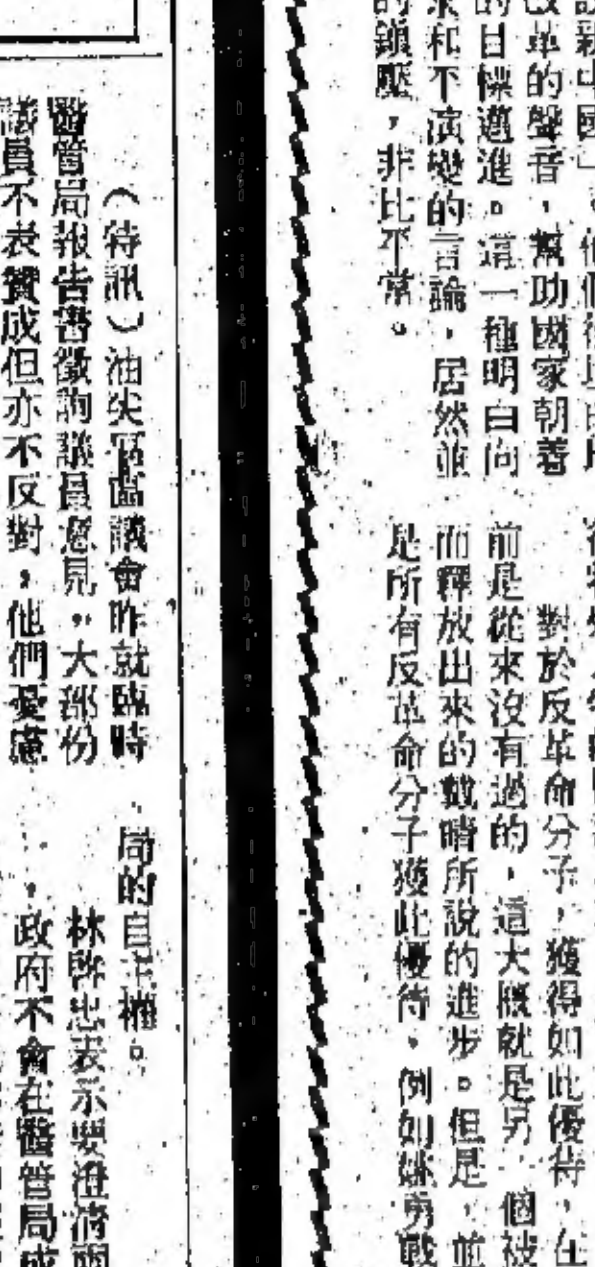 設新中國」。他們
改革的聲音，幫助國家朝着
的目標邁進。這一種明白向
求和不演變的言論，居然並
的鎮壓，非比尋常。
對於反革命分子，獲得如此優待，在
前是從來沒有過的，這大概就是另一個被
而釋放出來的戴晴所說的進步。但是，並
是所有反革命分子獲此優待，例如姚勇戰
（特訊）油尖區區議會昨就臨時
醫管局報告書徵詢議員意見，大部份
議員不表贊成但亦不反對，他們憂慮
局的自主權。
林 表示要澄清兩
，政府不會在醫管局成